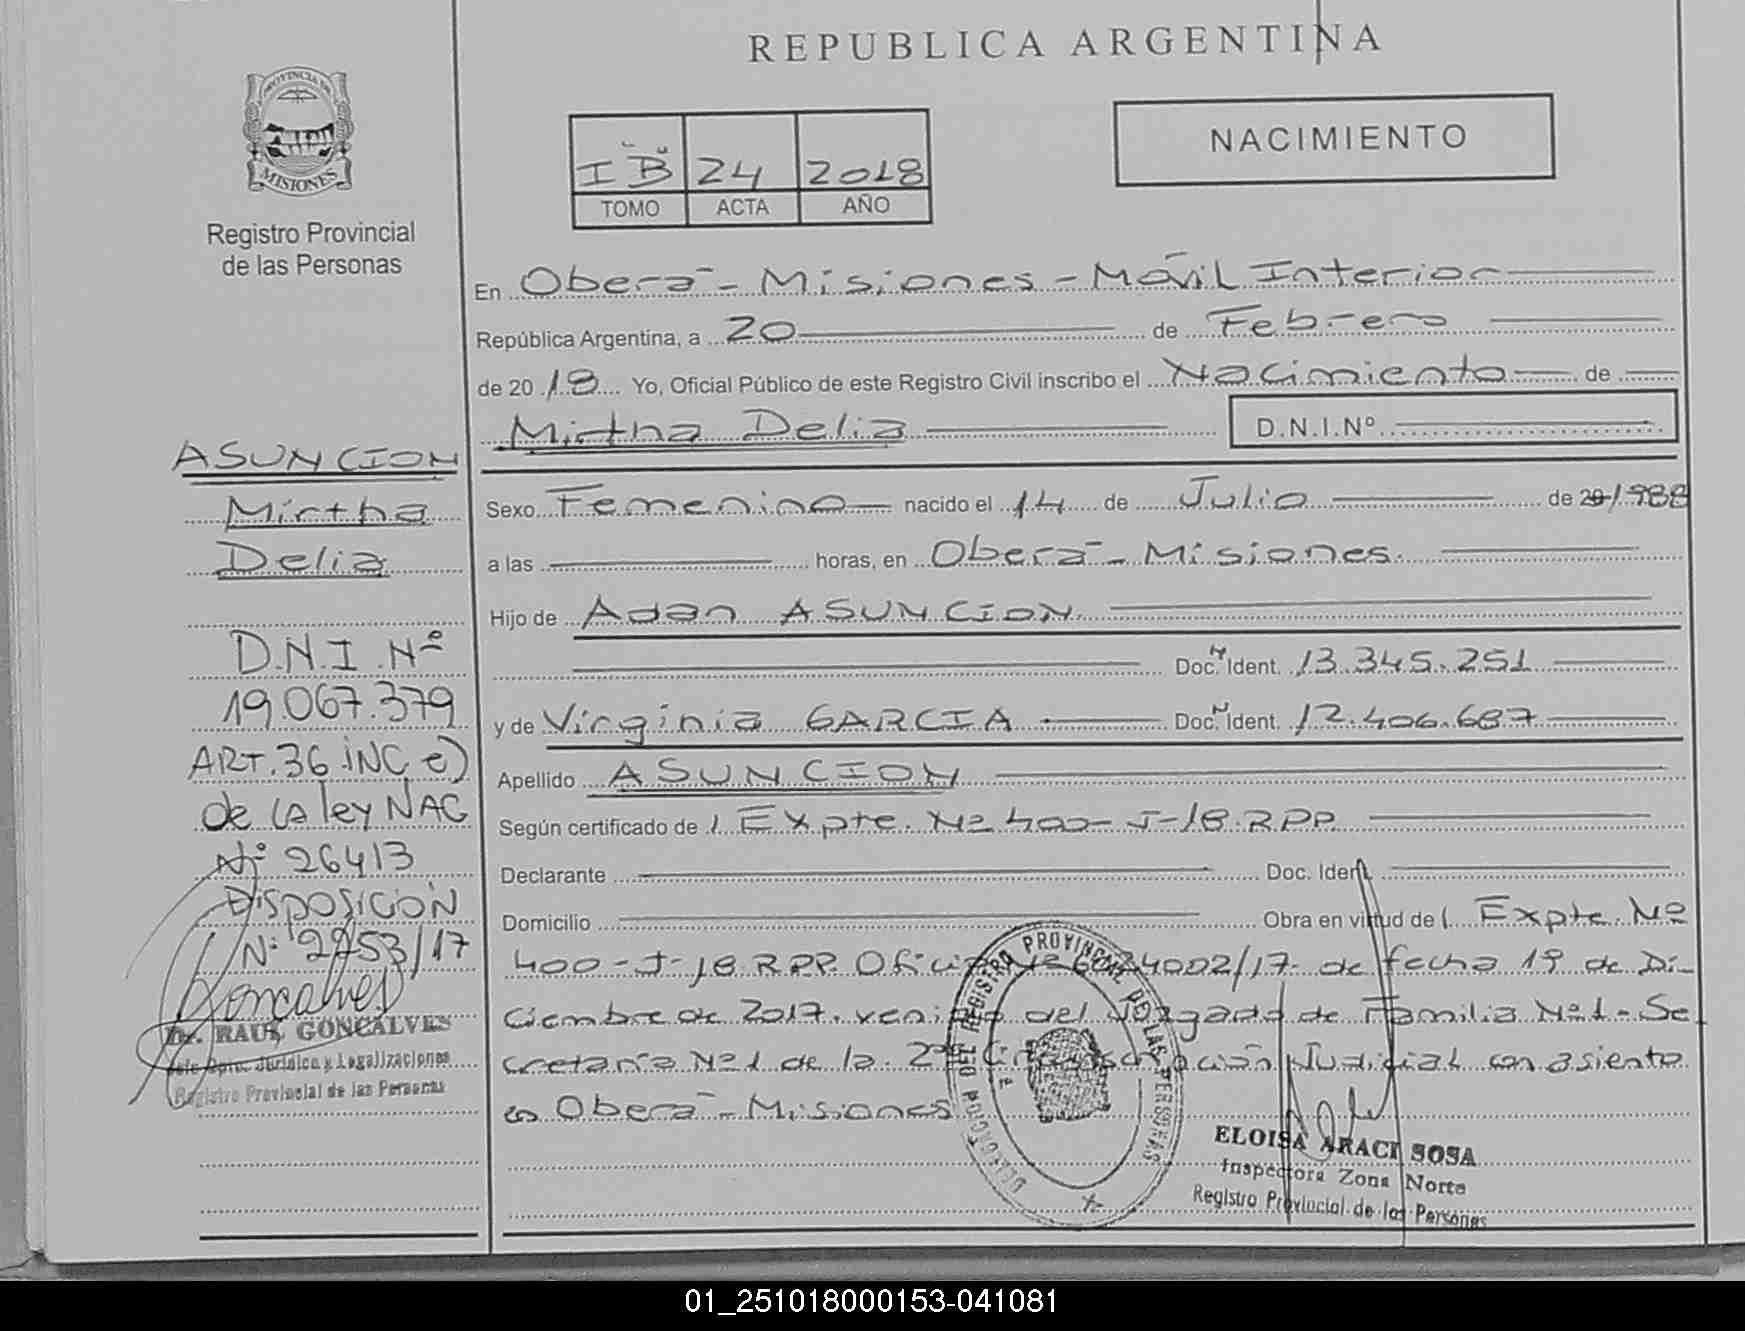 REPUBLICA ARGENTINA
PROVINCIA DE
MISIONES
Registro Provincial
de las Personas
IB 24 2018
TOMO ACTA AÑO
NACIMIENTO
En Oberá - Misiones - Móvil Interior
República Argentina, a 20 de Febrero
de 2018 Yo, Oficial Público de este Registro Civil inscribo el Nacimiento de
Mirtha Delia D.N.I.Nº
Sexo Femenino nacido el 14 de Julio de 20 1988
a las horas, en Oberá - Misiones.
Hijo de Adan ASUNCION
Doc. Ident. 13.345.251
y de Virginia GARCIA Doc. Ident. 12.406.687
Apellido ASUNCION
Según certificado de Expte. Nº 400-J-18.RPP.
Declarante Doc. Ident.
Domicilio Obra en virtud de Expte. Nº
400-J-18.RPP. Oficio 4002/17. de fecha 19 de Di-
ciembre de 2017. venido del Juzgado de Familia Nº1 - Se
cretaría Nº1 de la 2da Circunscripción Judicial con asiento
en Oberá - Misiones
ASUNCION
Mirtha
Delia
D.N.I. Nº
19.067.379
ART. 36 INC e)
de LA ley NAC
Nº 26413
DISPOSICIÓN
Nº 2253/17
Dr. RAUL GONCALVES
Jefe Dpto. Jurídico y Legalizaciones
Registro Provincial de las Personas
DIRECCION DEL REGISTRO PROVINCIAL DE LAS PERSONAS
ELOISA ARACI SOSA
Inspectora Zona Norte
Registro Provincial de las Personas
01_251018000153-041081